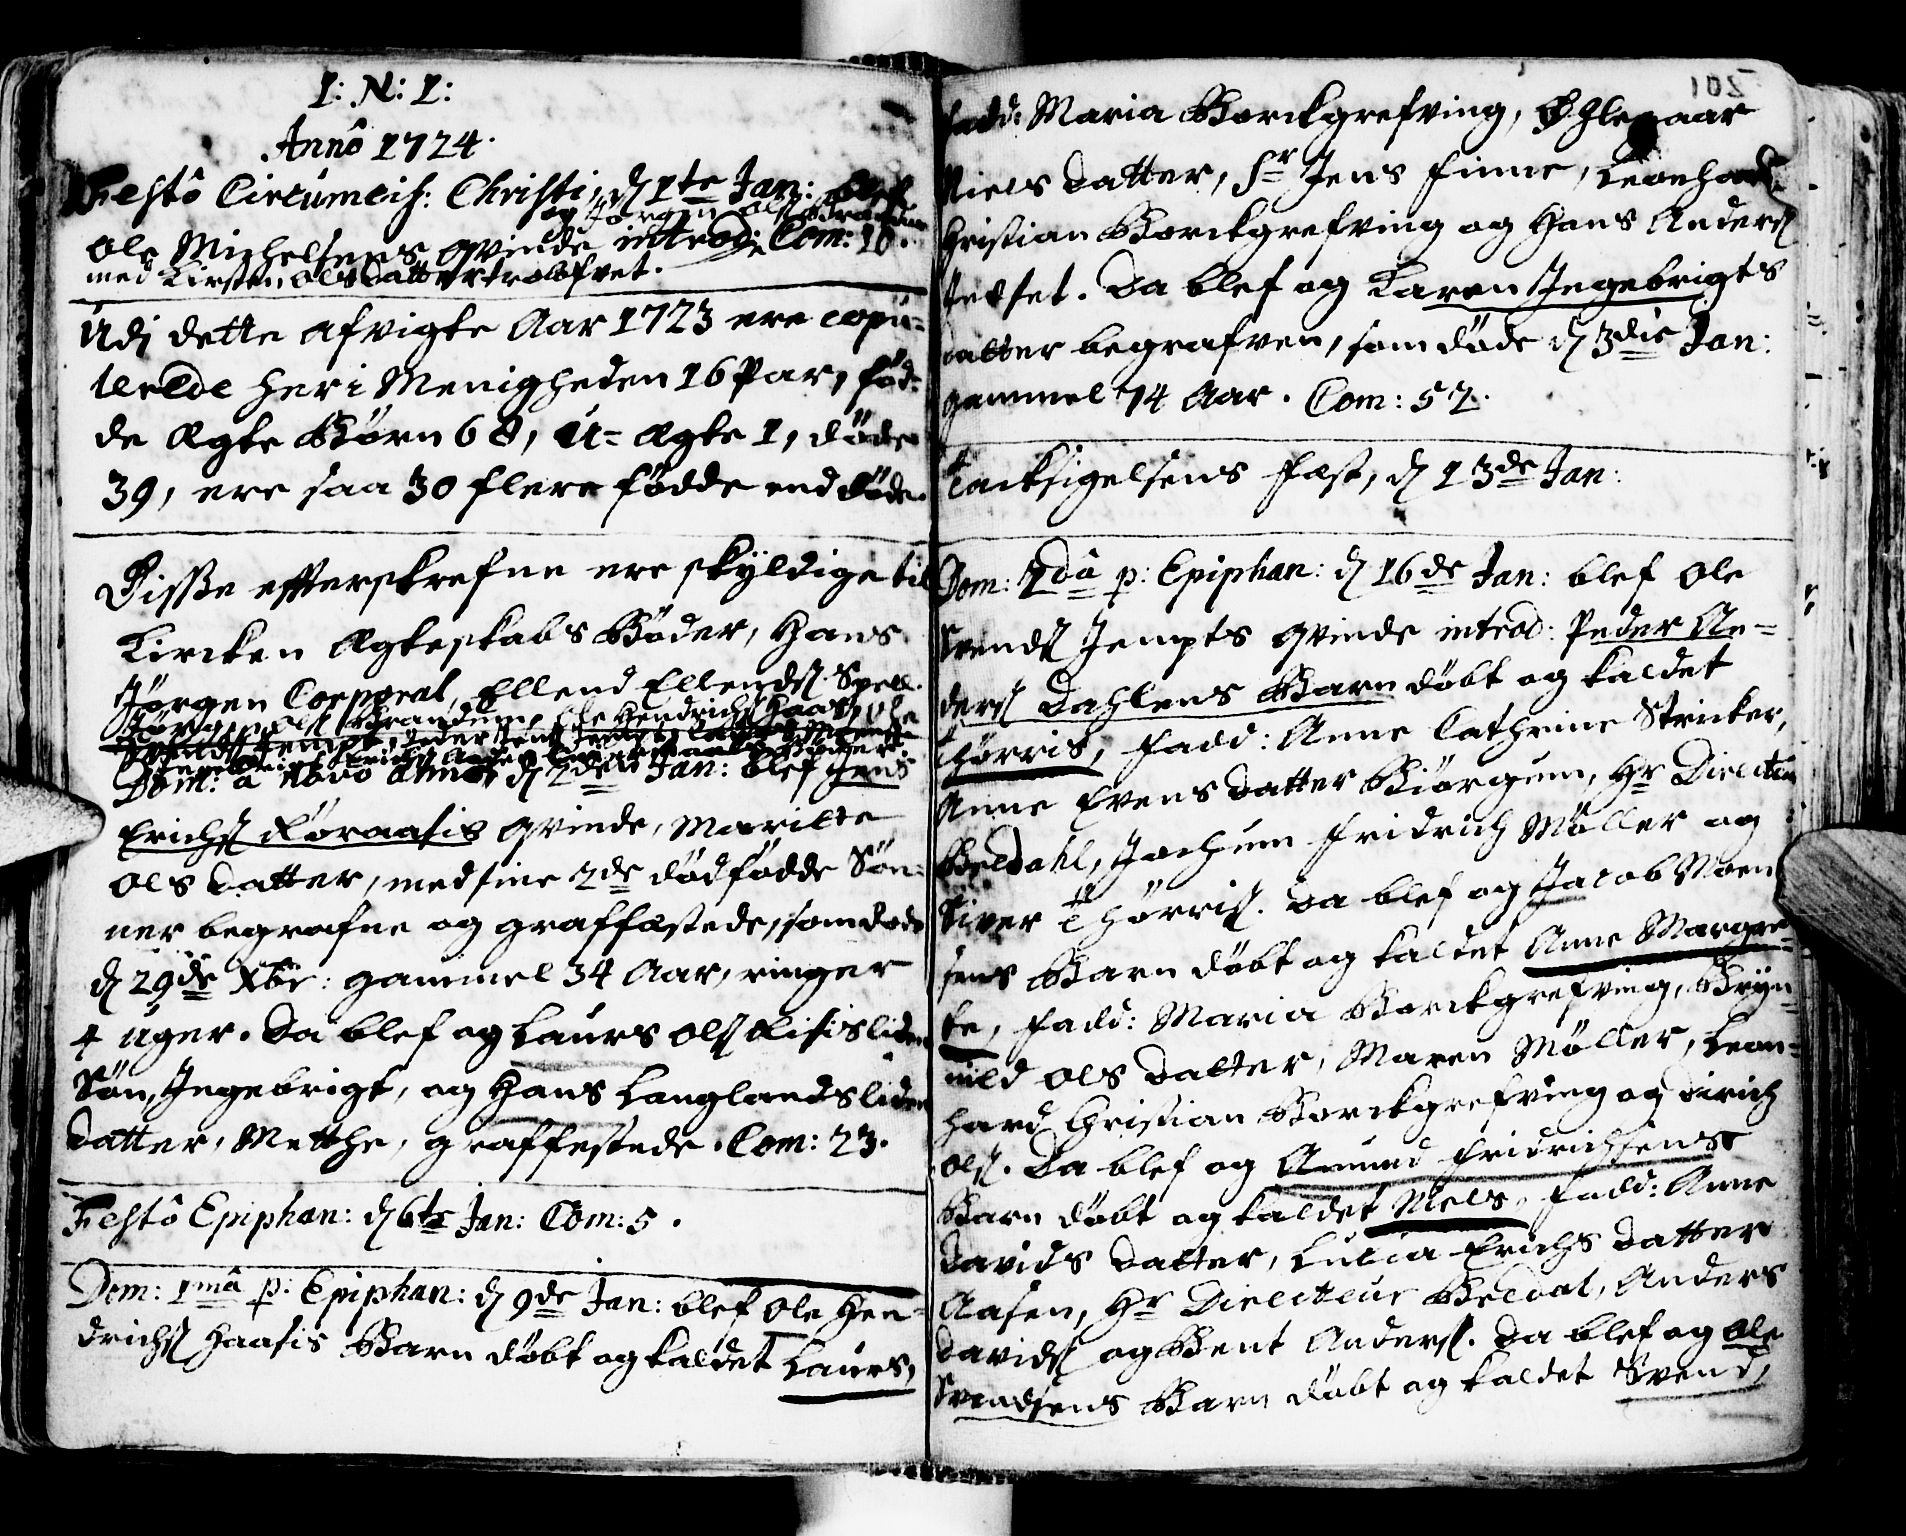 I: N: I:
Annô 1724.
Festô Circumcis: Christi, d 1te Jan: blef
og Jörgen Ols Brandum
Ole Michelsens qvinde introd: Com: 10.
med Kirsten Olsdatter trolofvet.
Udj dette afvigte Aar 1723 ere copu-
lerede her i Menigheden 16 Par, fød-
de Ægte Børn 68, U-Ægte 1, døde
39, ere saa 30 flere fødde end døde.
Disse efterskrefne ere skÿldige til
Kircken Ægteskabs Bøder, Hans
Jörgen Corporal, Ellend Ellends Spell.
Jörgen Ols Brandum, Ole Hendrichs Haas, Ole
Dom: a Novo Anno, d 2den Jan: blef Jens
Erichs Røraasis qvinde, Maritte
Ols datter, med sine 2de dødfødde Søn-
ner begrafne og graffæstede, som døde
d 29de Xbr: gammel 34 Aar, ringer
4 uger. Da blef og Laurs Ols Aisisliden
Søn, Ingebrigt, og Hans Langlandsliden
datter, Metthe, graffestede. Com: 23.
Festô Epiphan: d 6te Jan: Com: 5.
Dom: 1mâ p: Epiphan: d 9de Jan: blef Ole Hen-
drichs Haasis Barn døbt og kaldet Laurs,
fadd: Maria Borckgrefving,
Niels datter, Sr Jens Finne, Leonhard
Christian Borckgrefving og Hans Anders
Jelset. Da blef og Karen Ingebrigts
datter begrafven, som døde d 3die Jan:
gammel 74 Aar. Com: 52.
Tacksigelsens Fæst, d 13de Jan:
Dom: 2dâ p: Epiphan: d 16de Jan: blef Ole
Svends Jempts qvinde introd: Peder An-
ders Dahlens Barn døbt og kaldet
Thørris, Fadd: Anne Cathrine Stricker,
Anne Evens datter Biörgum, Hr Directeur
Beldahl, Jochum Fridrich Møller og
Siver Thørris. Da blef og Jacob Moen
sens Barn døbt og kaldet Anne Margre-
te, Fadd: Maria Borckgrefving, Brÿn-
nild Ols datter, Maren Møller, Leon-
hard Christian Borckgrefving og Dirich
Ols. Da blef og Amund Fridrichsens
Barn døbt og kaldet Niels, Fadd: Anne
Davids datter, Lucia Erichs datter
Aasen, Hr Directeur Beldal, Anders
Davids og Bent Anders. Da blef og Ole
Svendsens Barn døbt og kaldet Svend,